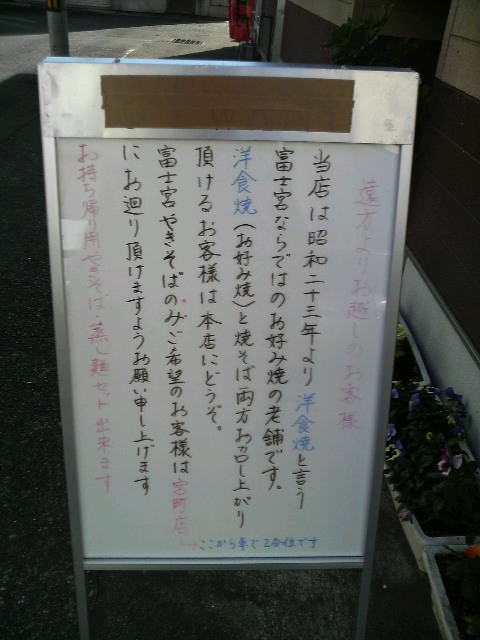 遠方よりお越しのお客様
当店は昭和二十三年より洋食焼と言う
富士宮ならではのお好み焼の老舗です。
洋食焼(お好み焼)と焼そば両方お召し上がり
頂けるお客様は本店にどうぞ。
富士宮やきそばのみご希望のお客様は宮町店
→ここから車で2分位です
にお廻り頂けますようお願い申し上げます
お持ち帰り用やきそば・蒸し麺セット出来ます